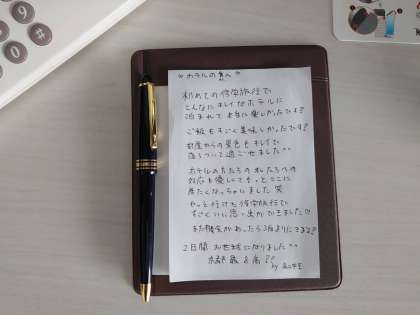 "ホテルの皆へ"
初めての修学旅行で
こんなにキレイなホテルに
泊まれて本当に楽しかったです?
ご飯もすごく美味しかったです?
部屋からの景色もキレイで
落ちついて過ごせました..
ホテルの方たちの私たちへの
対応も優しくてもっとここに
居たくなっちゃいました 笑
やっと行けた修学旅行で
すごくいい思い出ができました
また機会があったら泊まりにきます?
2日間お世話になりました..
京都最高!!
by 高二女子